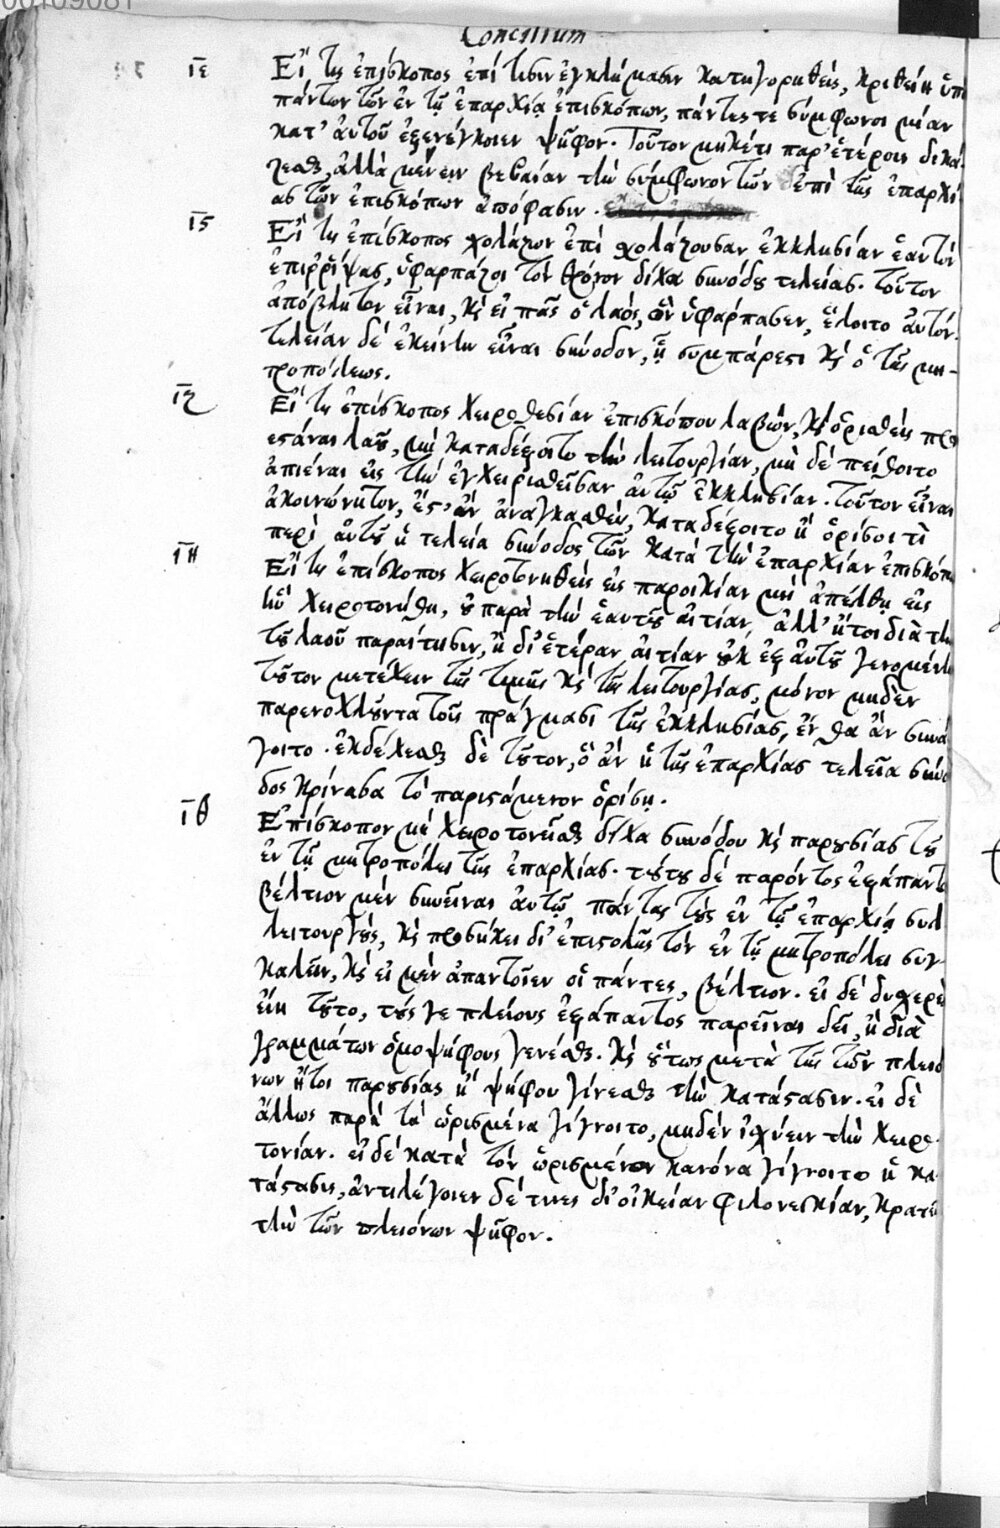 00109081
Concilium
ιε Εἴ τις ἐπίσκοπος ἐπί τισιν ἐγκλήμασιν κατηγορηθείς, κριθείη ὑπὸ
πάντων τῶν ἐν τῇ ἐπαρχίᾳ ἐπισκόπων, πάντες τε σύμφωνοι μίαν
κατ' αὐτοῦ ἐξενέγκοιεν ψῆφον. Τοῦτον μηκέτι παρ' ἑτέροις δικά
ζεσθαι, ἀλλὰ μένειν βεβαίαν τὴν σύμφωνον τῶν ἐπὶ τῆς ἐπαρχί
ας τῶν ἐπισκόπων ἀπόφασιν.
ις Εἴ τις ἐπίσκοπος σχολάζων ἐπὶ σχολάζουσαν ἐκκλησίαν ἑαυτὸν
ἐπιῤῥίψας, ὑφαρπάζοι τὸν θρόνον δίχα συνόδου τελείας. τοῦτον
ἀπόβλητον εἶναι, καὶ εἰ πᾶς ὁ λαός, ὃν ὑφάρπασεν, ἕλοιτο αὐτόν.
τελείαν δὲ ἐκείνην εἶναι σύνοδον, ᾗ συμπάρεστι καὶ ὁ τῆς μη-
τροπόλεως.
ιζ Εἴ τις ἐπίσκοπος χειροθεσίαν ἐπισκόπου λαβὼν, καὶ ὁρισθεὶς προ
εστάναι λαοῦ, μὴ καταδέξοιτο τὴν λειτουργίαν, μὴ δὲ πείθοιτο
ἀπιέναι εἰς τὴν ἐγχειρισθεῖσαν αὐτῷ ἐκκλησίαν. τοῦτον εἶναι
ἀκοινώνητον, ἔστ' ἂν ἀναγκασθεὶς, καταδέξοιτο ἢ ὁρίσοι τὶ
περὶ αὐτοῦ ἡ τελεία σύνοδος τῶν κατὰ τὴν ἐπαρχίαν ἐπισκόπων
ιη Εἴ τις ἐπίσκοπος χειροτονηθεὶς εἰς παροικίαν μὴ ἀπέλθῃ εἰς
ἣν ἐχειροτονήθη, οὐ παρὰ τὴν ἑαυτοῦ αἰτίαν, ἀλλ' ἤτοι διὰ τὴν
τοῦ λαοῦ παραίτησιν, ἢ δι' ἑτέραν αἰτίαν οὐκ ἐξ αὐτοῦ γενομένην
τοῦτον μετέχειν τῆς τιμῆς καὶ τῆς λειτουργίας, μόνον μηδὲν
παρενοχλοῦντα τοῖς πράγμασι τῆς ἐκκλησίας, ἔνθα ἂν συνά
γοιτο. ἐκδέχεσθαι δὲ τοῦτον, ὃ ἂν ἡ τῆς ἐπαρχίας τελεία σύνο
δος κρίνασα τὸ παριστάμενον ὁρίσῃ.
ιθ Ἐπίσκοπον μὴ χειροτονεῖσθαι δίχα συνόδου καὶ παρουσίας τοῦ
ἐν τῇ μητροπόλει τῆς ἐπαρχίας. τούτου δὲ παρόντος ἐξάπαντος
βέλτιον μὲν συνεῖναι αὐτῷ πάντας τοὺς ἐν τῇ ἐπαρχίᾳ συλ
λειτουργούς, καὶ προσήκει δι' ἐπιστολῆς τὸν ἐν τῇ μητροπόλει συγ-
καλεῖν, καὶ εἰ μὲν ἀπαντοῖεν οἱ πάντες, βέλτιον. εἰ δὲ δυσχερὲς
εἴη τοῦτο, τούς γε πλείους ἐξάπαντος παρεῖναι δεῖ, ἢ διὰ
γραμμάτων ὁμοψήφους γενέσθαι. καὶ οὕτως μετὰ τῆς τῶν πλειό
νων ἤτοι παρουσίας ἢ ψήφου γίνεσθαι τὴν κατάστασιν. εἰ δὲ
ἄλλως παρὰ τὰ ὡρισμένα γίγνοιτο, μηδὲν ἰσχύειν τὴν χειρο-
τονίαν. εἰ δὲ κατὰ τὸν ὡρισμένον κανόνα γίγνοιτο ἡ κα
τάστασις, ἀντιλέγοιεν δέ τινες δι' οἰκείαν φιλονεικίαν, κρατεῖν
τὴν τῶν πλειόνων ψῆφον.